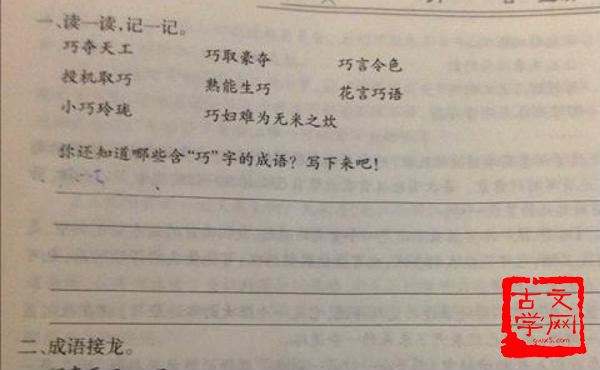 一、读一读,记一记。
巧夺天工 巧取豪夺 巧言令色
授机取巧 熟能生巧 花言巧语
小巧玲珑 巧妇难为无米之炊
你还知道哪些含“巧”字的成语?写下来吧!
二、成语接龙。
古文
学网
gwx5.com